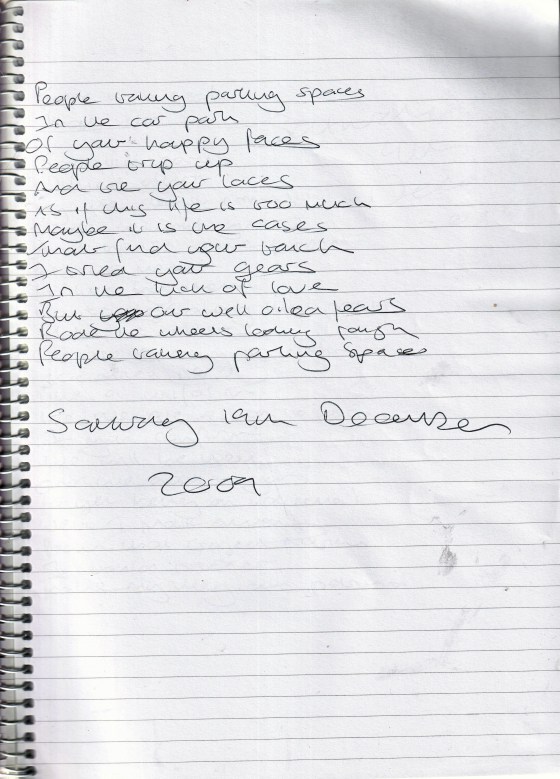 People taking parking spaces
In the car park
Of your happy faces
People trip up
And tie your laces
As if this life is too much
Maybe it is the cases
that find your touch
I oiled your gears
In the tick of love
But our well oiled fears
the wheels looking rough
People taking parking spaces
Saturday 19th December
2009